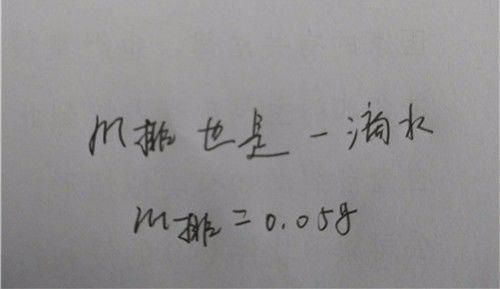 m排也是一滴水
m排=0.05g